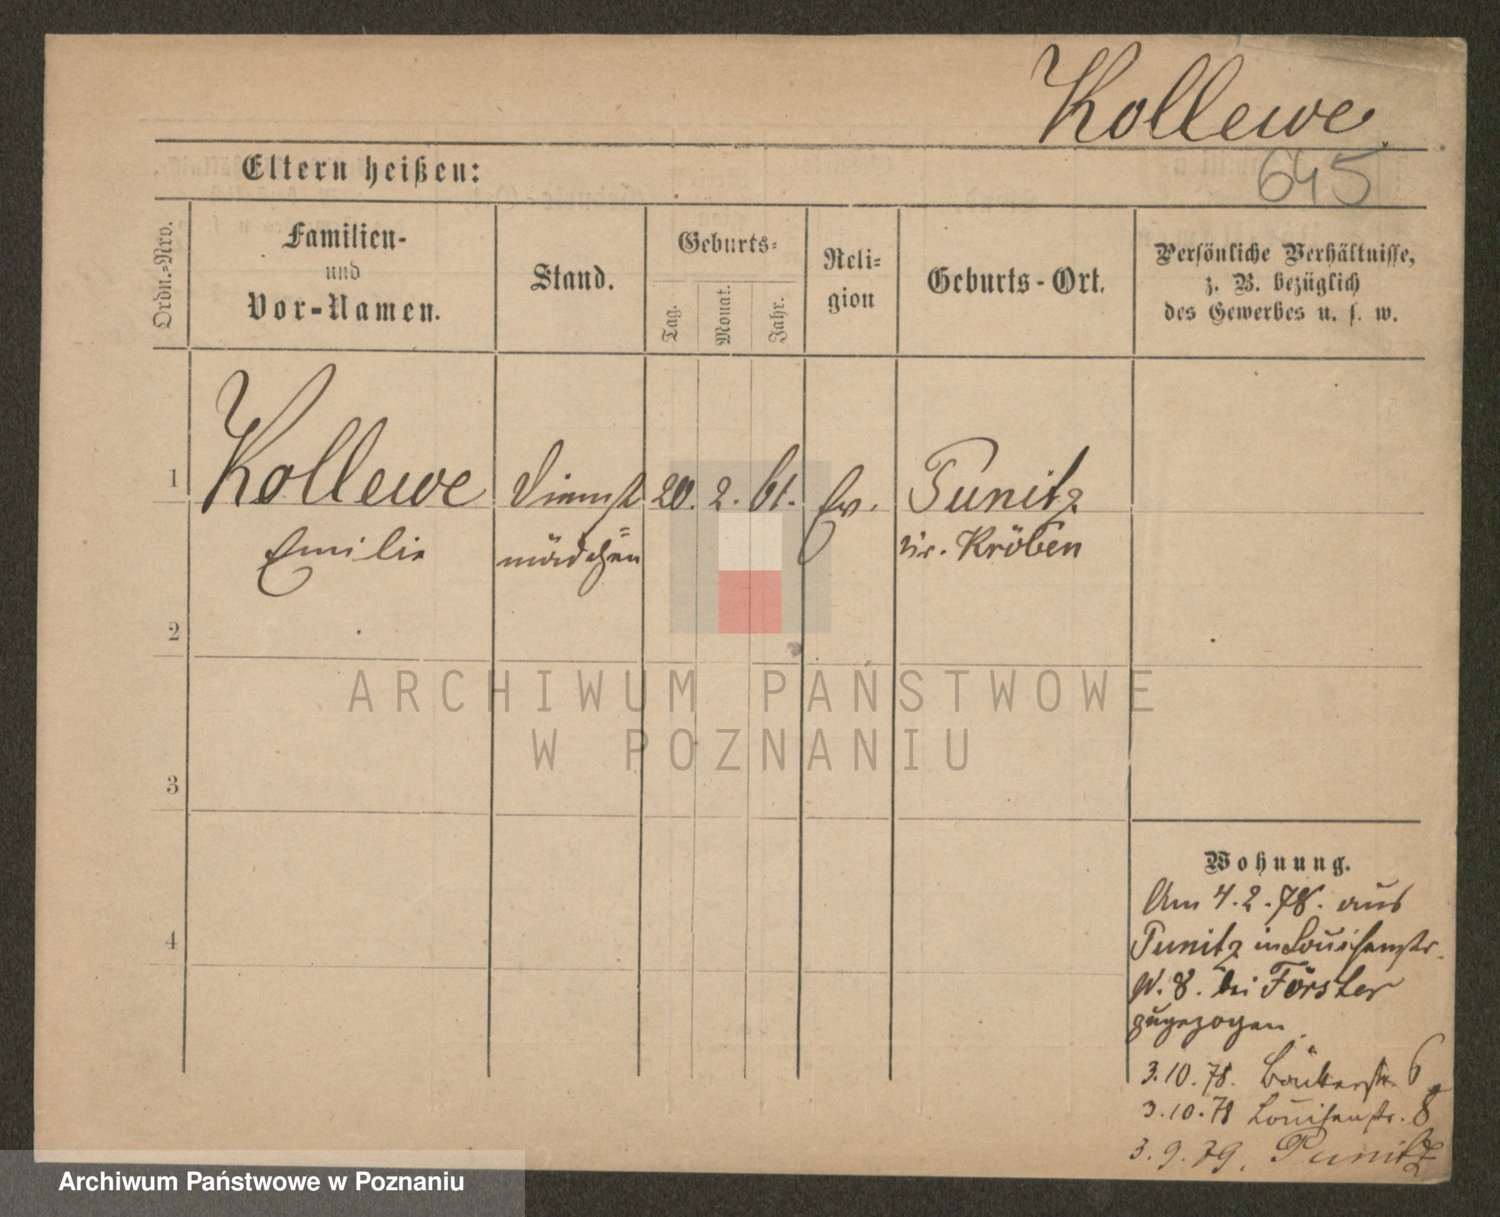 Kollewe
645
Eltern heißen:
Ordn.=Nro.
Familien-
und
Vor-Namen.
Stand.
Geburts-
Tag.
Monat.
Jahr.
Reli-
gion
Geburts-Ort.
Persönliche Verhältnisse,
z. B. bezüglich
des Gewerbes u. s. w.
1
Kollewe Dienst 20. 2. 61. Ev. Punitz
Emilie mädchen Kr. Kröben
2
ARCHIWUM PAŃSTWOWE
W POZNANIU
3
4
Wohnung.
Am 4.2.78. aus
Punitz in Louisenstr.
N. 8. bei Förster
zugezogen.
3.10.78. Bäckerstr. 6
3.10.78 Louisenstr. 8
3.9.79. Punitz
Archiwum Państwowe w Poznaniu